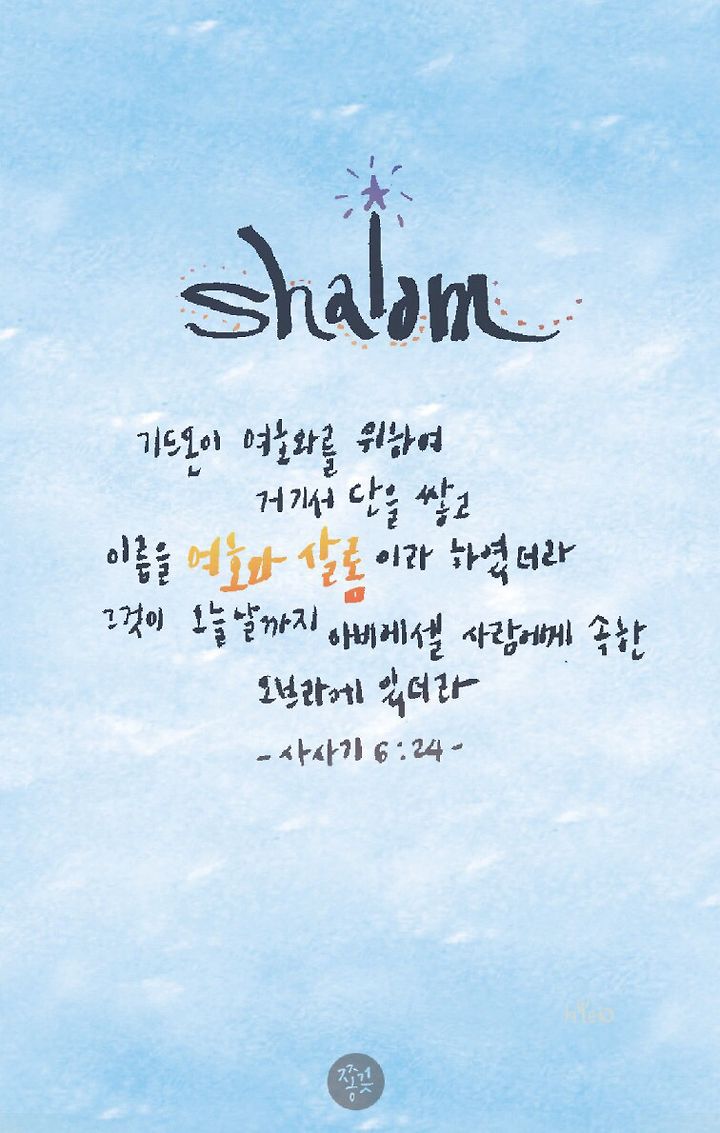 shalom
기드온이 여호와를 위하여
거기서 단을 쌓고
이름을 여호와 살롬이라 하였더라
그것이 오늘날까지 아비에셀 사람에게 속한
오브라에 있더라
- 사사기 6:24 -
쫑긋